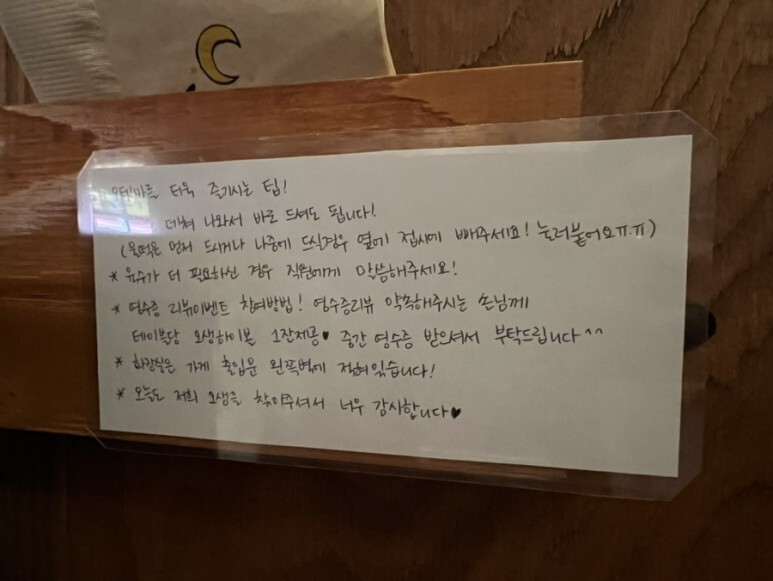 더욱 즐기시는 팁!
데쳐 나와서 바로 드셔도 됩니다!
(물떡은 먼저 드시거나 나중에 드실경우 옆에 접시에 빼주세요! 눌러붙어요ㅠ.ㅠ)
* 육수가 더 필요하신 경우 직원에게 말씀해주세요!
* 영수증 리뷰이벤트 참여방법! 영수증리뷰 약속해주시는 손님께
테이블당 요생하이볼 1잔제공♥ 중간 영수증 받으셔서 부탁드립니다^^
* 화장실은 가게 출입문 왼쪽벽에 적혀있습니다!
* 오늘도 저희 요생을 찾아주셔서 너무 감사합니다♥